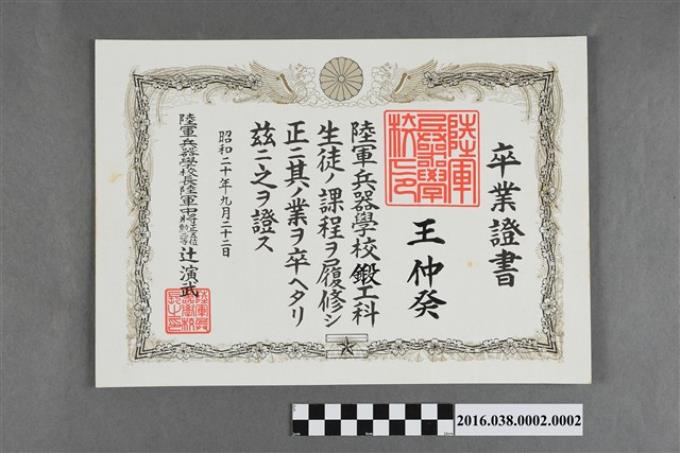 卒業證書
王仲癸
陸軍兵器學校印
陸軍兵器學校鍛工科
生徒ノ課程ヲ履修シ
正ニ其ノ業ヲ卒ヘタリ
茲ニ之ヲ證ス
昭和二十年九月二十二日
陸軍兵器學校長陸軍中將正四位勳二等辻演武
2016.038.0002.0002